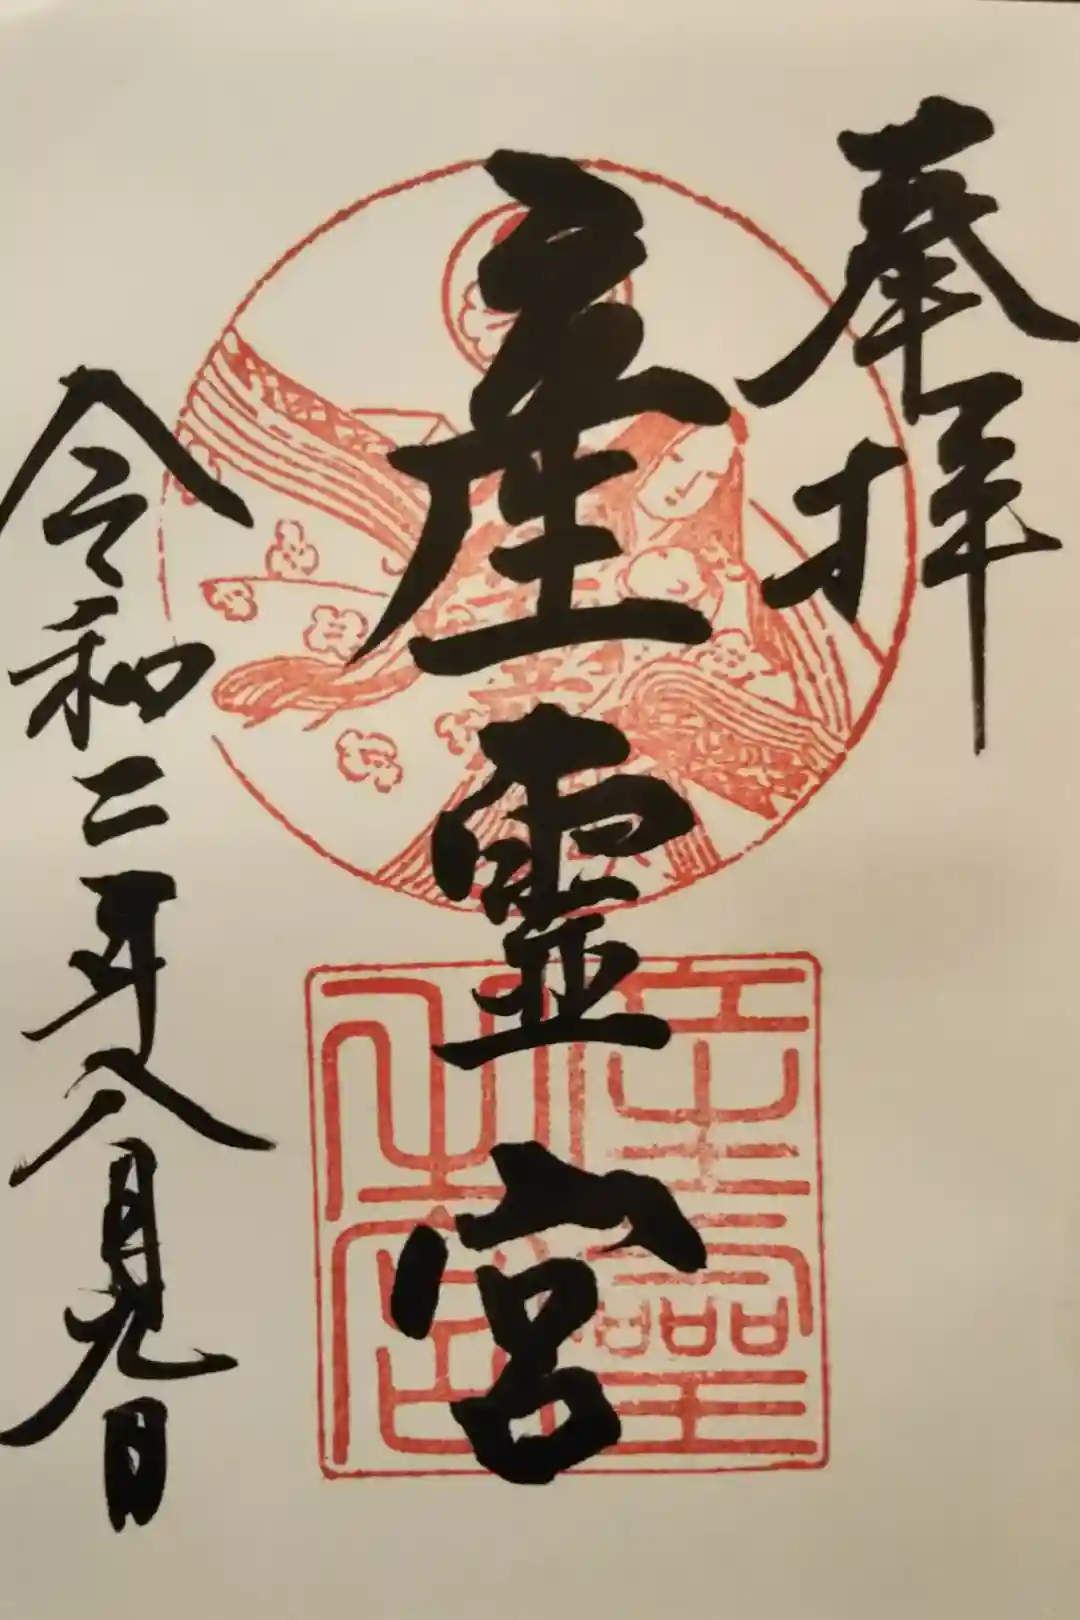 奉拝
産霊宮
令和二年八月九日